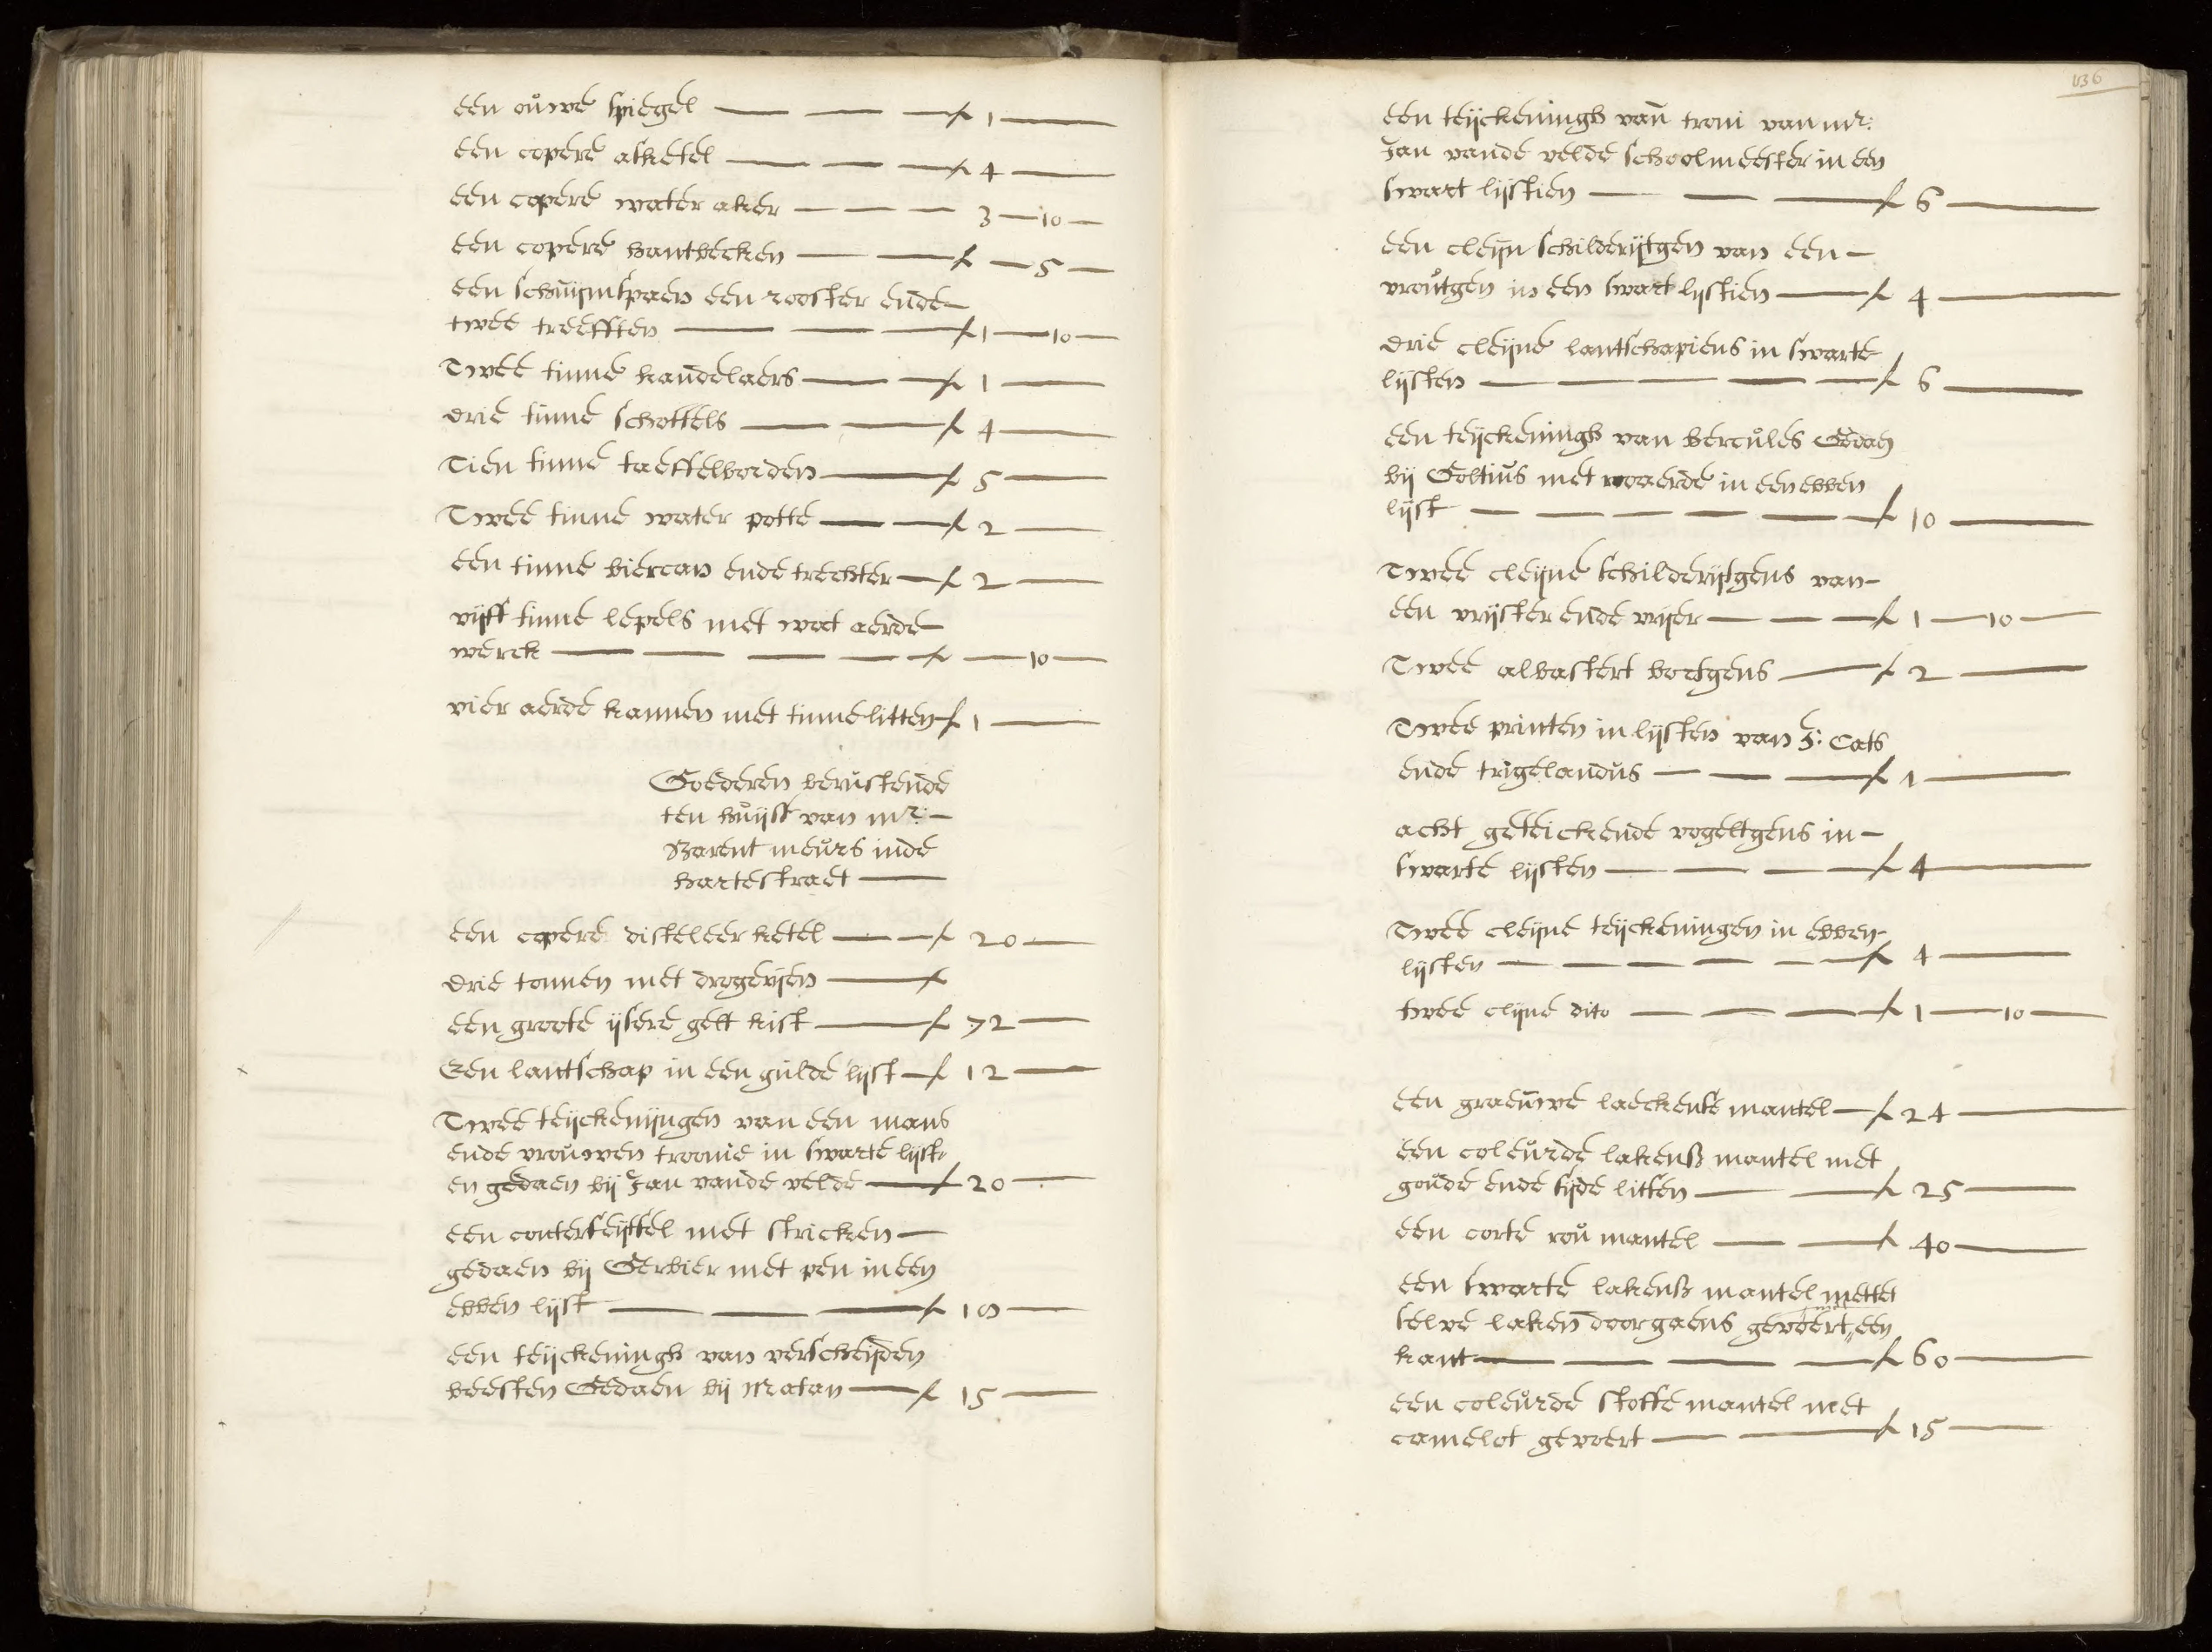 een ouwe spiegel — — — f 1 —
een copere asketel — — — f 4 —
een copere water aker — — — 3 — 10 —
een copere hantbecken — — f — 5 —
een schuijmspaen een rooster ende
twee treefften — — — f 1 — 10 —
Twee tinne kandelaers — — f 1 —
drie tinne schottels — — f 4 —
Tien tinne taeffelborden — f 5 —
Twee tinne water potte — — f 2 —
een tinne biercan ende trechter — f 2 —
vijff tinne lepels met wat aerde
werck — — — — f — 10 —
vier aerde kannen met tinne litten f 1 —
Goederen berustende
ten huijse van mr: —
Barent meurs inde
hartestraet —
een copere disteleer ketel — — f 20 —
drie tonnen met drogerijen — f
een groote ijsere gelt kist — f 72 —
Een lantschap in een gulde lijst — f 12 —
Twee teijckenijngen van een mans
ende vrouwen troonie in swarte lijst
en gedaen bij Jan vande velde — f 20 —
een conterfeijtsel met stricken —
gedaen bij Gerbier met pen in een
ebben lijst — — — f 10 —
een teijckeningh van verscheijden
beesten Gedaen bij Matan — f 15 —
136
een teijckeningh van troni van mr:
Jan vande velde schoolmeester in een
swart lijstien — — — f 6 —
een cleijn schilderijtgen van een —
vroutgen in een swart lijstien — f 4 —
drie cleijne lantschapiens in swarte
lijsten — — — — — f 6 —
een teijckeningh van hercules Gedaen
bij Goltius met roaerde in een ebben
lijst — — — — — — f 10 —
Twee cleijne schilderijtgens van —
een vrijster ende vrijer — — — f 1 — 10 —
Twee albastert bortgens — f 2 —
Twee printen in lijsten van J: Cats
ende trigelandus — — — f 1 —
acht geteickende vogeltgens in —
swarte lijsten — — — — f 4 —
Twee cleijne teijckeningen in ebben
lijsten — — — — — — f 4 —
twee clijne dito — — — f 1 — 10 —
een graeuwe laeckense mantel — f 24 —
een coleurde lakenß mantel met
goude ende sijde litsen — — f 25 —
een corte rou mantel — — f 40 —
een swarte lakenß mantel mettet
selve laken doorgaens gevoert, met een
kant — — — — f 60 —
een coleurde stoffe mantel met
camelot gevoert — — f 15 —